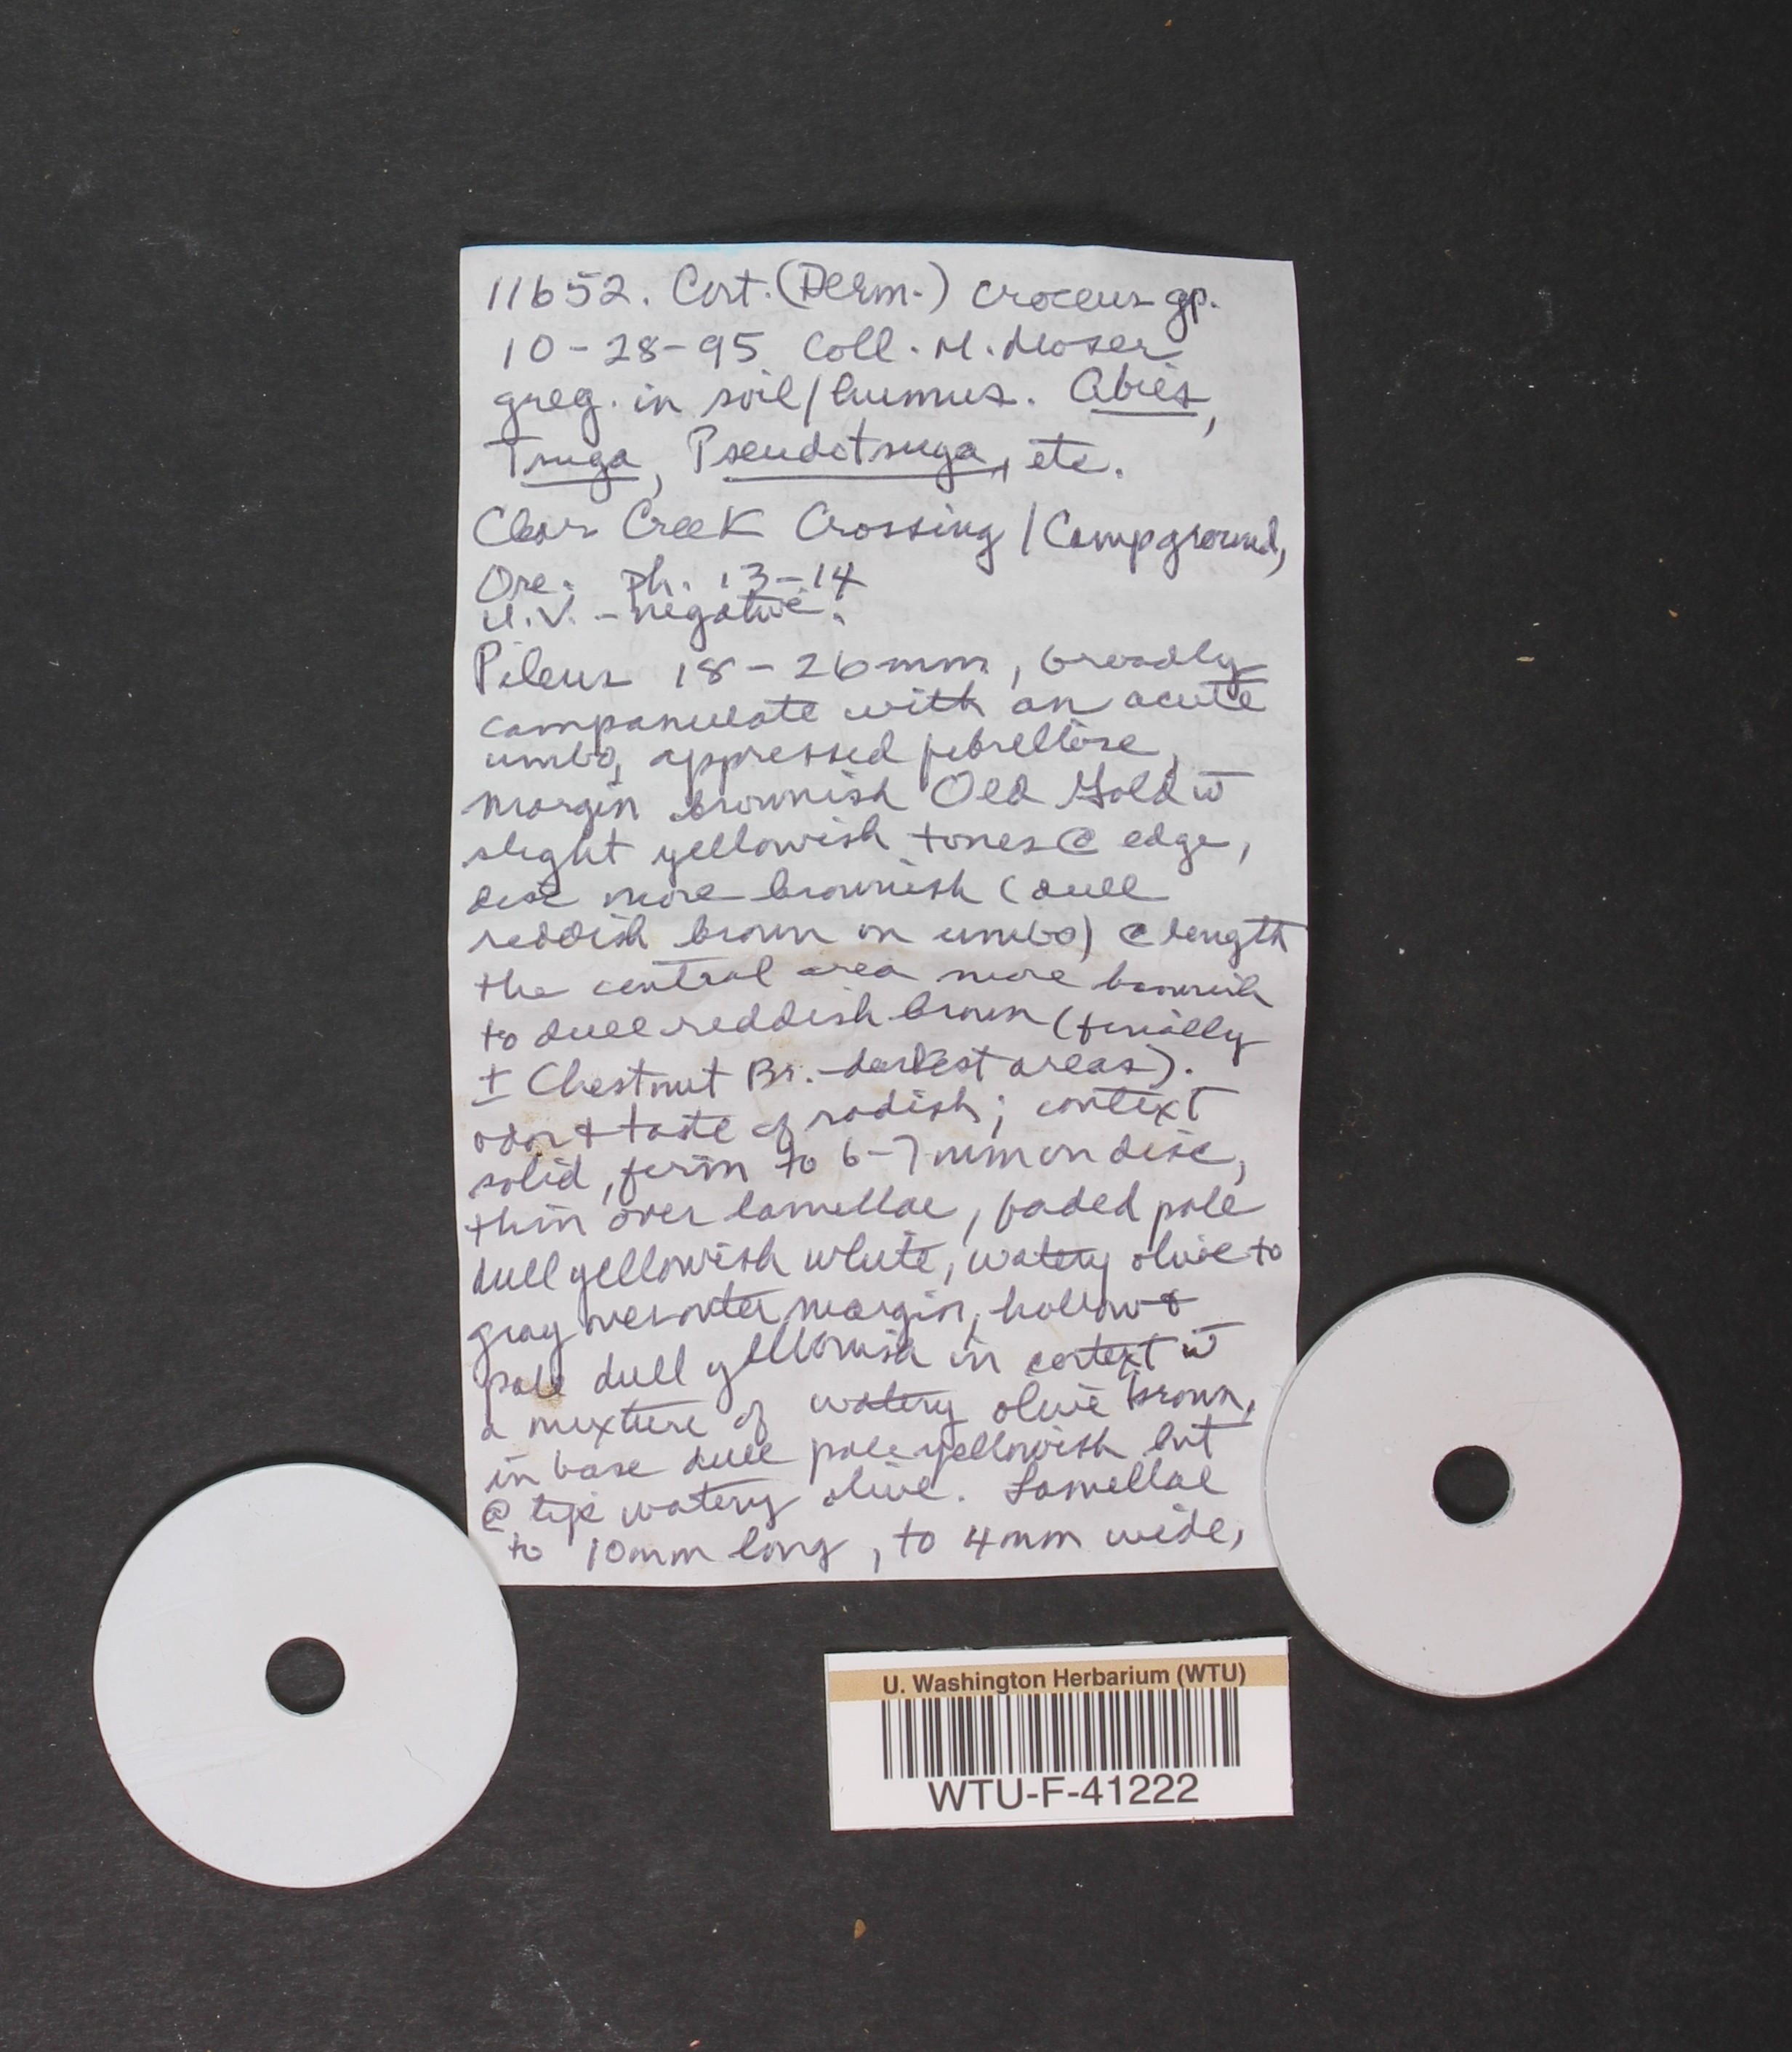 11652. Cort. (Derm.) croceus gp.
10-28-95 Coll. M. Moser
greg. in soil/humus. Abies,
Tsuga, Pseudotsuga, etc.
Clear Creek Crossing / Campground,
Ore. Ph. 13-14
U.V. - negative.
Pileus 18-26mm, broadly
campanulate with an acute
umbo, appressed fibrillose,
margin brownish Old Gold w̄
slight yellowish tones @ edge,
disc more brownish (dull
reddish brown on umbo) @ length
the central area more brownish
to dull reddish brown (finally
± Chestnut Br. - darkest areas).
odor & taste of radish; context
solid, firm to 6-7mm on disc,
thin over lamellae, faded pale
dull yellowish white, watery olive to
gray over outer margin, hollow &
pale dull yellowish in cortext w̄
a mixture of watery olive brown,
in base dull pale yellowish but
@ tips watery olive. Lamellae
to 10mm long, to 4mm wide,
U. Washington Herbarium (WTU)
WTU-F-41222